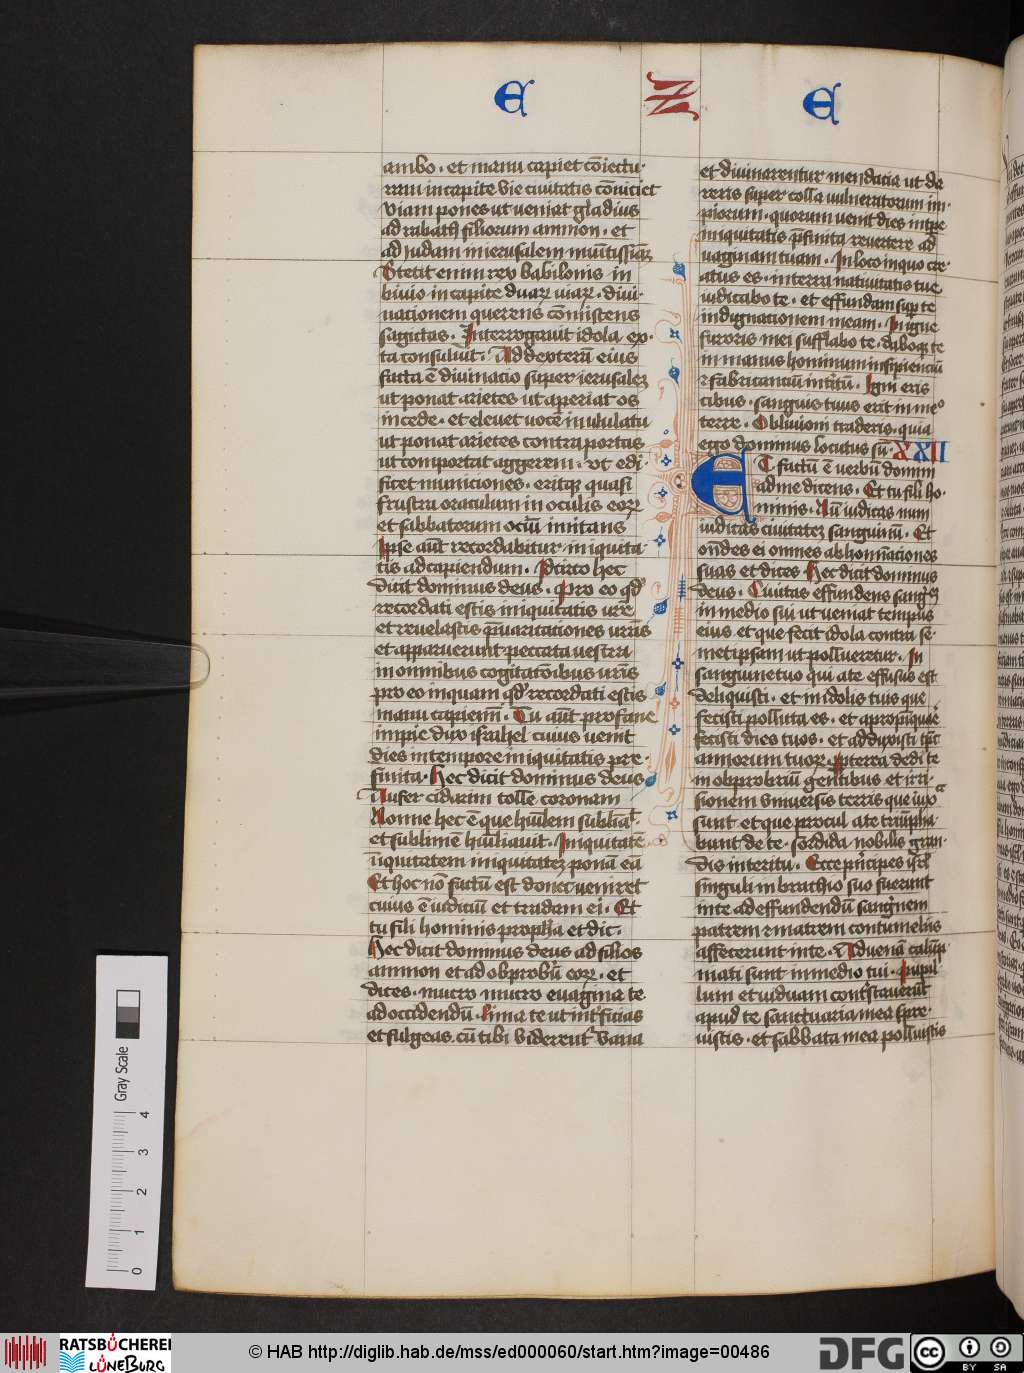 E Z E
ambo · et manu capiet cōiectu·
ram in capite vie civitatis cōiciet
viam pones ut veniat gladius
ad rabath filiorum ammon · et
ad iudam in ierusalem munitissimā
Stetit enim rex babilonis in
bivio in capite duar viar · divi·
nationem querens cōmiscens
sagittas · Interrogavit idola ex·
ta consuluit · Ad dexterā eius
facta ē divinacio super ierusalē
ut ponat arietes ut aperiat os
in cede · et elevet vocē in ululatu
ut ponat arietes contra portas
ut comportat aggerem · ut edi
ficet municiones · eritqz quasi
frustra oraculum in oculis eorz
et sabbatorum ociū imitans
Ipse aūt recordabitur iniquita
tis ad capiendum · Idcirco hec
dicit dominus deus · pro eo qd
recordati estis iniquitatis vrē
et revelastis p̄varicationes vrās
et apparuerunt peccata vestra
in omnibus cogitatōibus vris
pro eo inquam qd recordati estis
manu capiemī · Tu aūt profane
impie dux israhel cuius venit
dies in tempore iniquitatis pre·
finita · Hec dicit dominus deus
Aufer cidarim tolle coronam
Nonne hec ē que humilem subliāt
et sublimē humiliavit · Iniquitatē
iniquitatem iniquitatē ponā eā
Et hoc nō factū est donec veniret
cuius ē iudiciū et tradam ei · Et
tu fili hominis propha et dic ·
Hec dicit dominus deus ad filios
ammon et ad obprobriū eorz · et
dices · mucro mucro evagina te
ad occidendū · lima te ut int'ficias
et fulgeas · cū tibi viderent' vana
et divinarentur mendacia ut da
reris super colla vulneratorum im·
piorum · quorum venit dies in tpe
iniquitatis p̄finita revertere ad
vaginam tuam · In loco in quo cre·
atus es · in terra nativitatis tue
iudicabo te · et effundam sup te
indignationem meam · In igne
furoris mei sufflabo te · daboqz te
in manus hominum insipienciū
et fabricanciū int'itū · Igni eris
cibus · sanguis tuus erit in meᵒ
terre · Oblivioni traderis · quia
ego dominus locutus sū · XXII
ET factū ē verbū domini
ad me dicens · Et tu fili ho·
minis · Nū iudicas num
iudicas civitatē sanguinū · Et
ondes ei omnes abhominationes
suas et dices · Hec dicit dominus
deus · Civitas effundens sanguinē
in medio sui ut veniat tempus
eius et que fecit idola contra se·
met ipsam ut pollueretur · In
sanguine tuo qui a te effusus est
deliquisti · et in idolis tuis que
fecisti polluta es · et apropinquare
fecisti dies tuos · et adduxisti tpc
annorum tuorz · Propterea dedi te
in obprobriū gentibus et irri·
sionem universis terris que iuxᵃ
sunt et que procul a te triumpha·
bunt de te · sordida nobilis gran·
dis interitu · Ecce prīcipes isrl
singuli in brachio suo fuerunt
in te ad effundendū sangˀnem
patrem et matrem contumeliis
affecerunt in te · Advenā calūp·
niati sunt in medio tui · pupil
lum et viduam cont'staverūt
apud te sanctuaria mea spre·
vistis · et sabbata mea polluistis
Gray Scale
0 1 2 3 4
RATSBÜCHEREI
LÜNEBURG
© HAB http://diglib.hab.de/mss/ed000060/start.htm?image=00486
DFG
cc BY SA